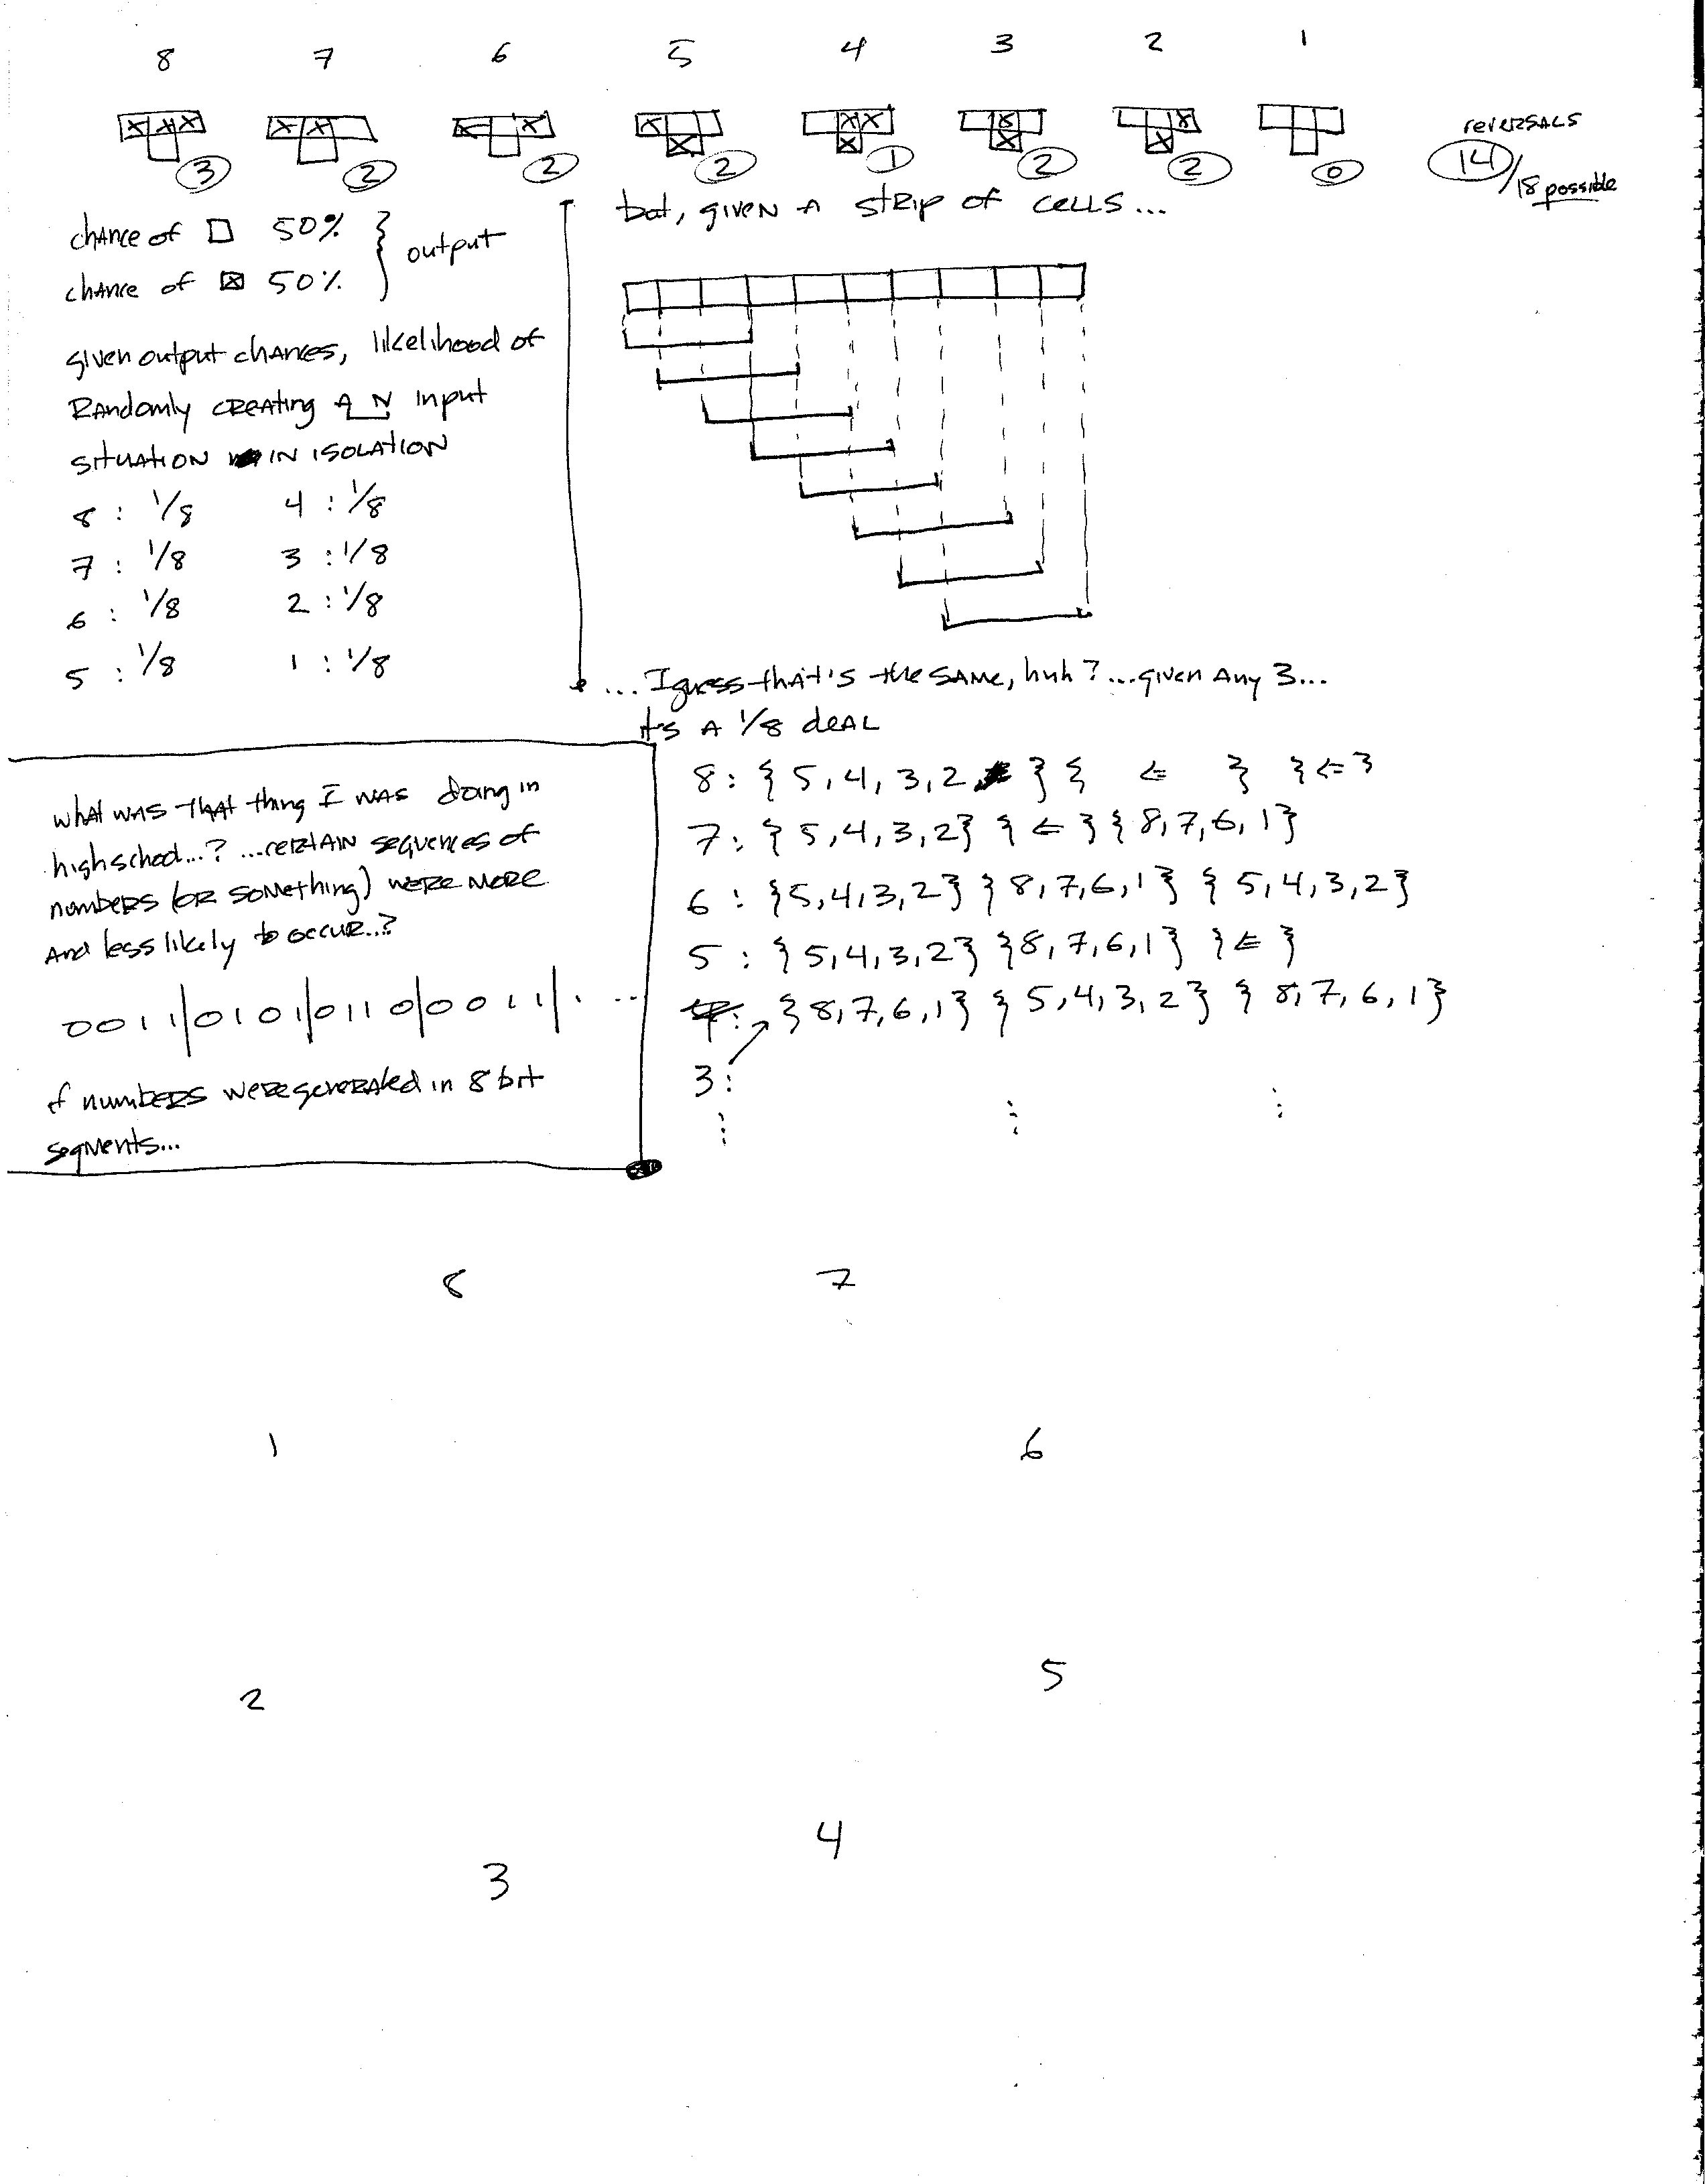 8 7 6 5 4 3 2 1
3 2 2 2 1 2 2 0
reversals
14/18 possible
chance of □ 50% } output
chance of ☒ 50%
given output chances, likelihood of
Randomly creating A N input
situation in isolation
8 : 1/8 4 : 1/8
7 : 1/8 3 : 1/8
6 : 1/8 2 : 1/8
5 : 1/8 1 : 1/8
but, given a strip of cells...
... I guess that's the same, huh? ...given any 3...
it's a 1/8 deal
8: {5,4,3,2} { ⇐ } {⇐}
7: {5,4,3,2} {⇐} {8,7,6,1}
6: {5,4,3,2} {8,7,6,1} {5,4,3,2}
5: {5,4,3,2} {8,7,6,1} {⇐}
4: {8,7,6,1} {5,4,3,2} {8,7,6,1}
3:
what was that thing I was doing in
highschool...? ...certain sequences of
numbers (or something) were more
and less likely to occur..?
0011|0101|0110|0011|. ...
if numbers were generated in 8 bit
segments...
8 7
1 6
2 5
3 4